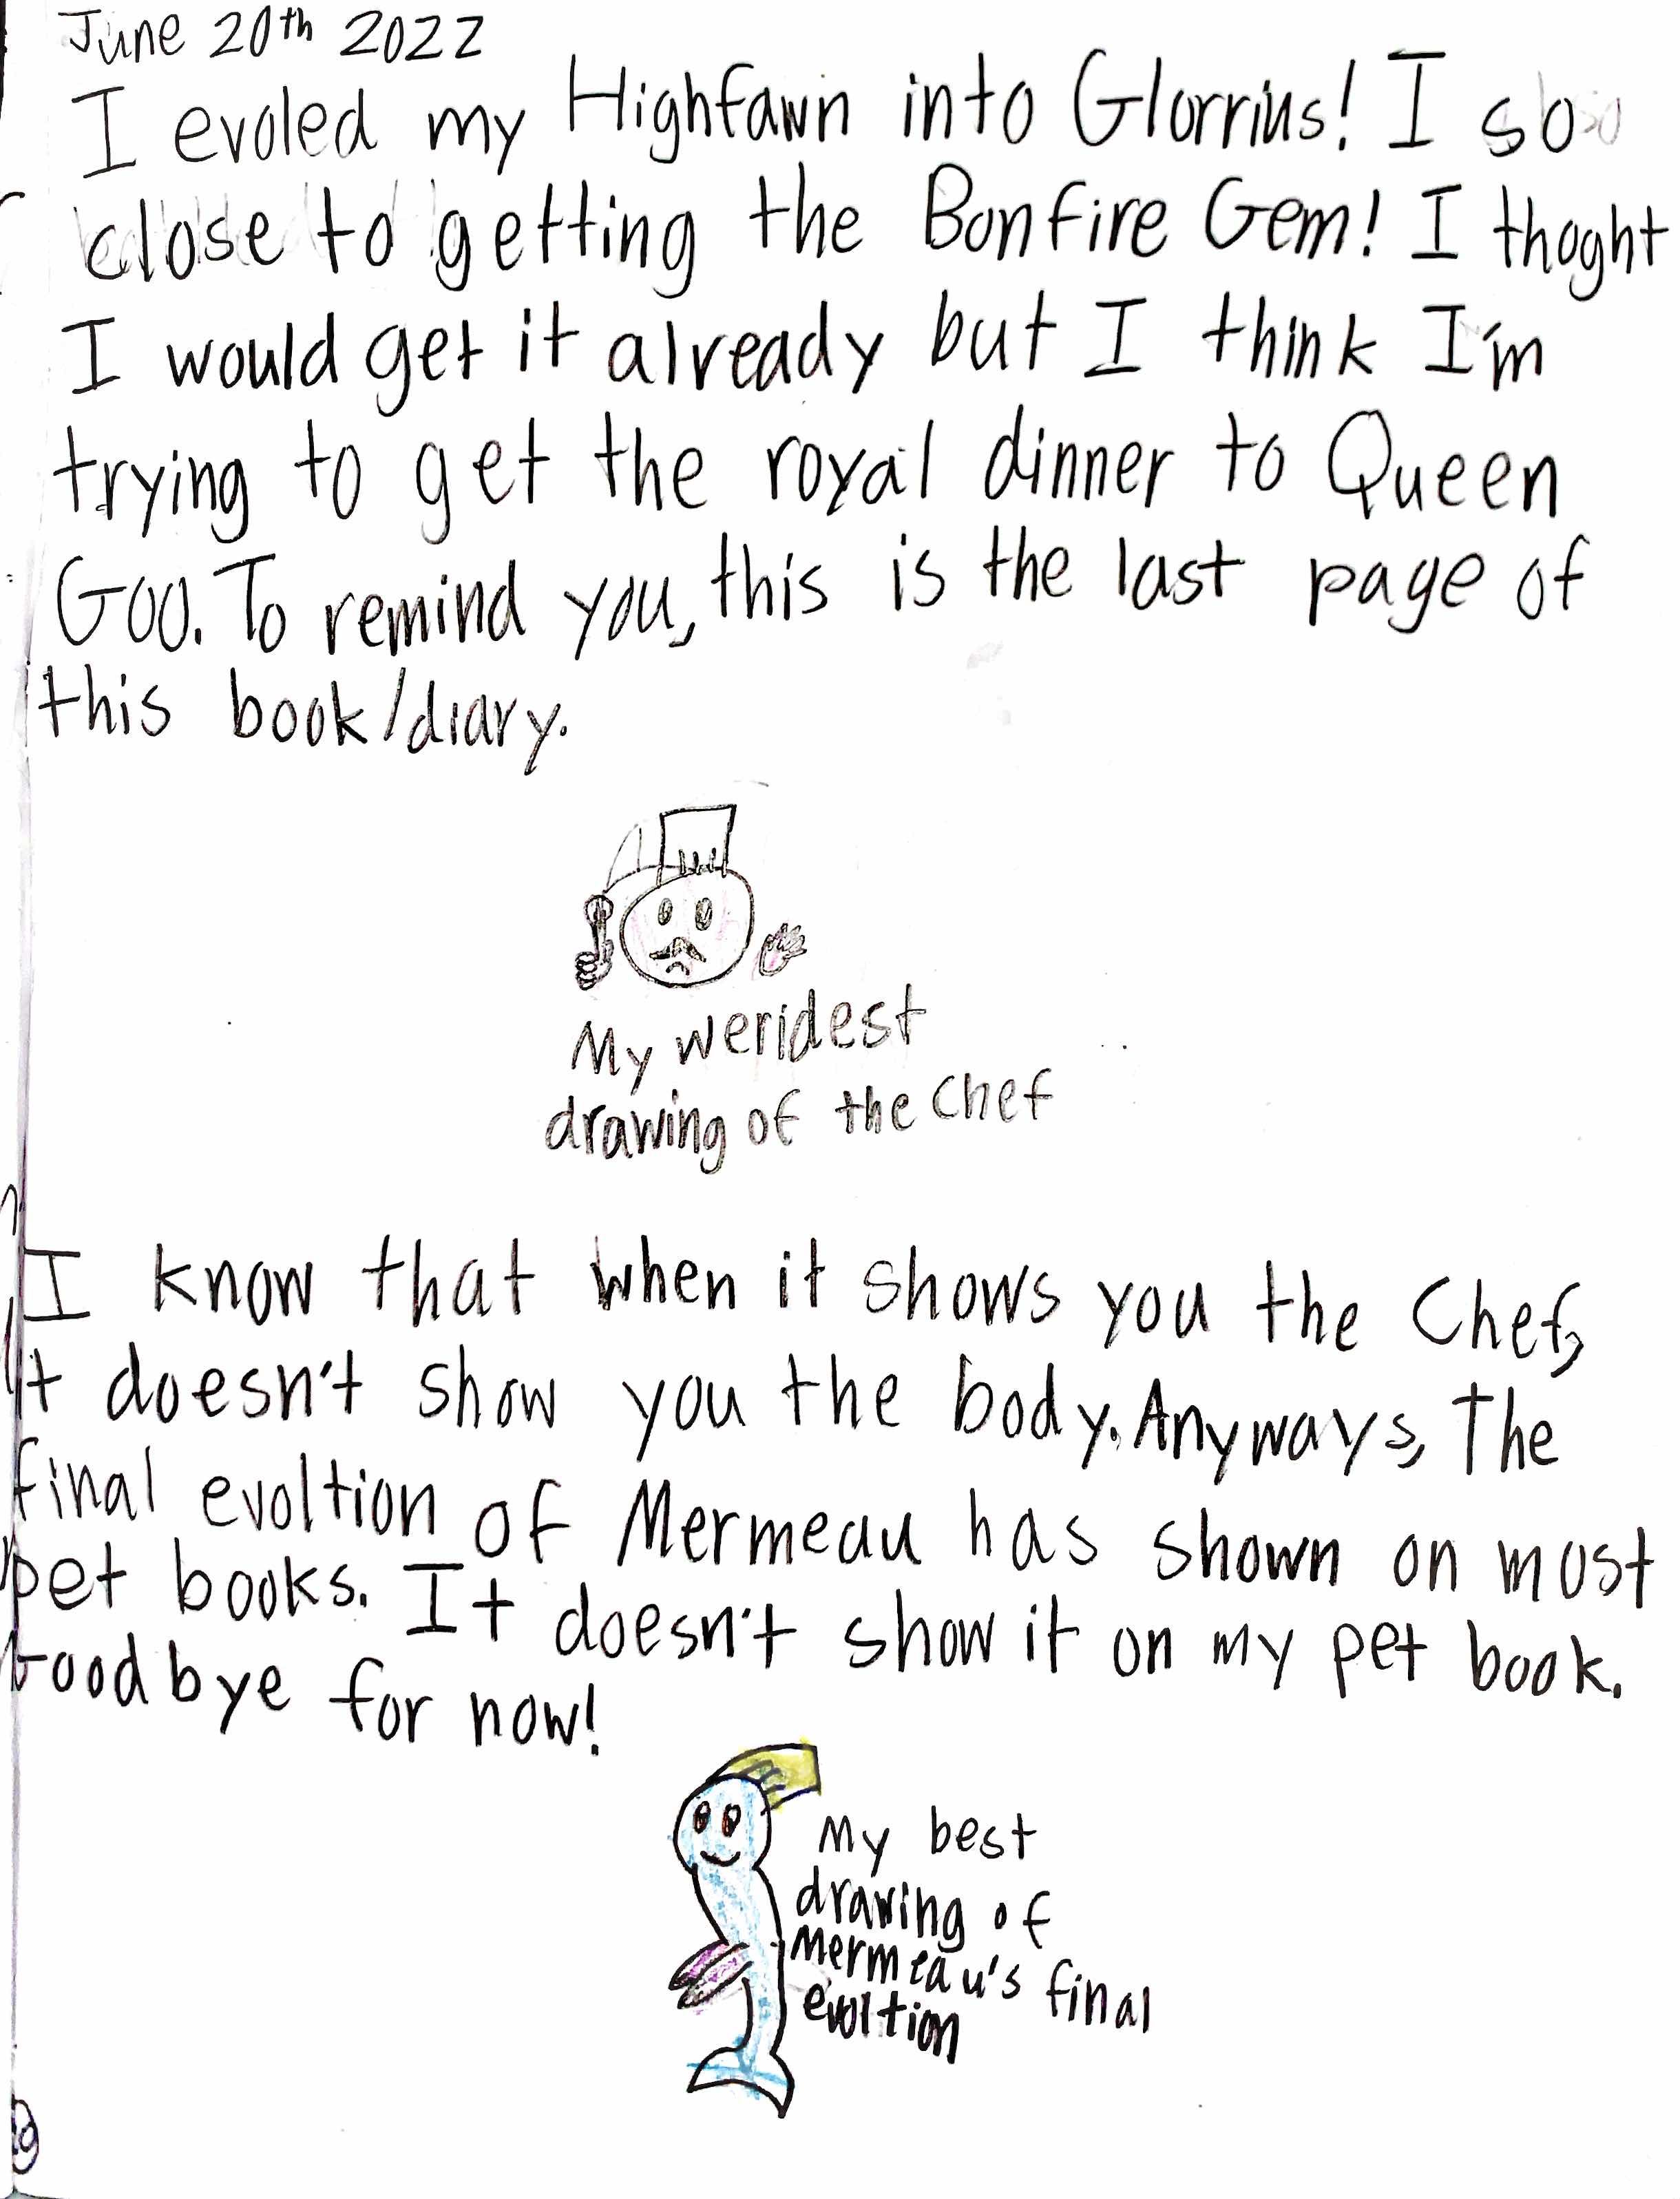 June 20th 2022
I evoled my Highfawn into Glorrius! I so
close to getting the Bonfire Gem! I thoght
I would get it already but I think I'm
trying to get the royal dinner to Queen
Goo. To remind you, this is the last page of
this book/diary.
My weridest
drawing of the Chef
I know that when it shows you the Chef,
It doesn't show you the body. Anyways, The
final evoltion of Mermeau has shown on most
pet books. It doesn't show it on my pet book.
Goodbye for now!
My best
drawing of
Mermeau's final
evoltion